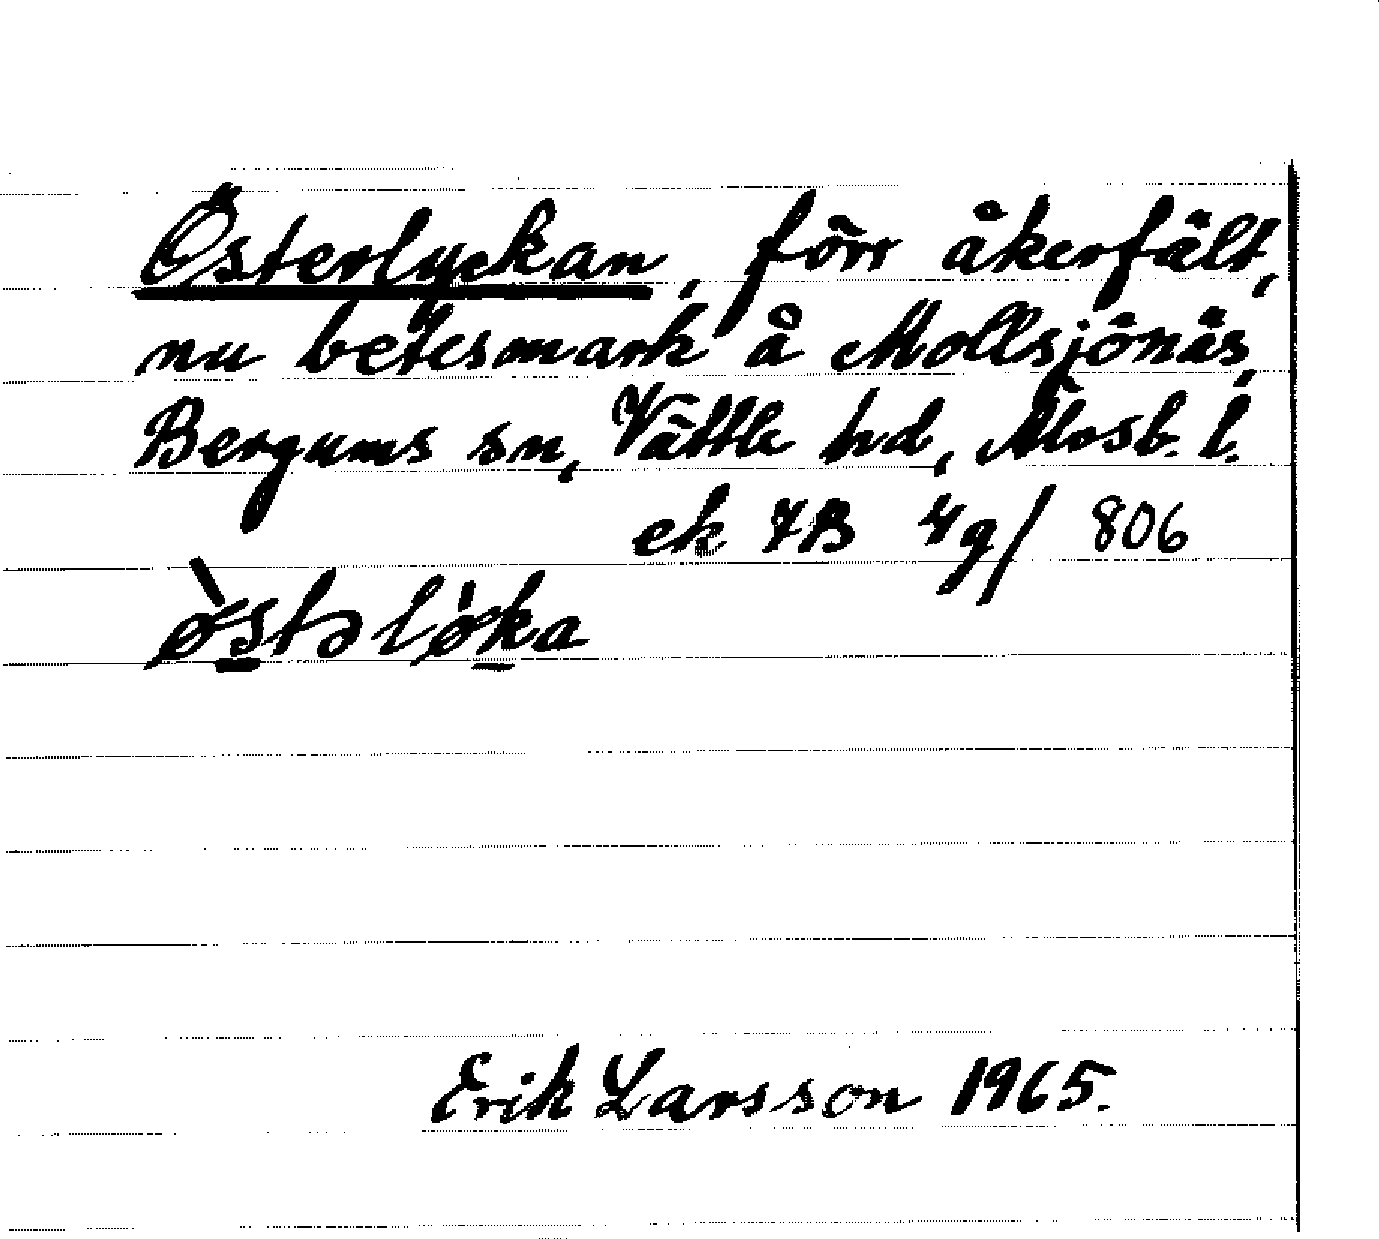 Österlyckan, förr åkerfält,
nu betesmark å Mollsjönäs,
Bergums sn, Vättle hd, Älvsb. l.
ek 7B 4g/ 806
østəløka
Erik Larsson 1965.